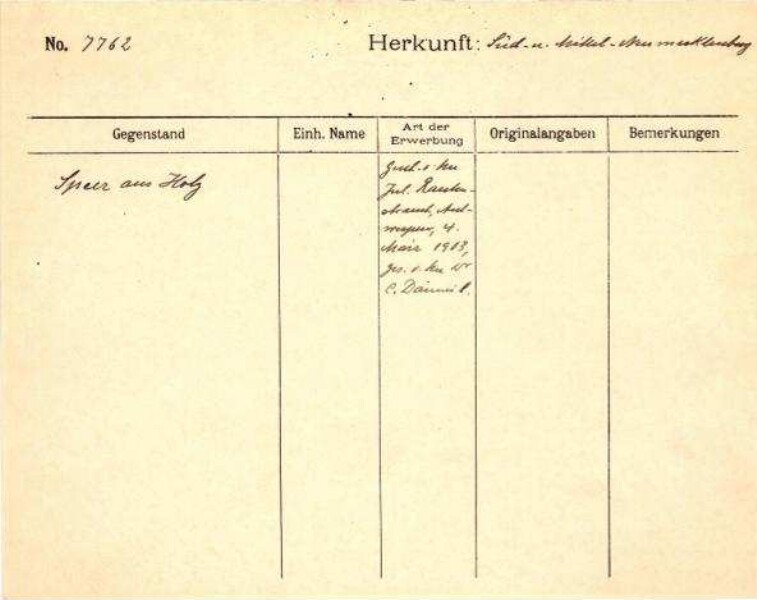 No. 7762 Herkunft: Süd- u. Mittel-Neumecklenburg
Gegenstand Einh. Name Art der Erwerbung Originalangaben Bemerkungen
Speer aus Holz
Gesch. v.
Jul.
4.
März 1913,
ges. v. Dr
C. Dammeil.